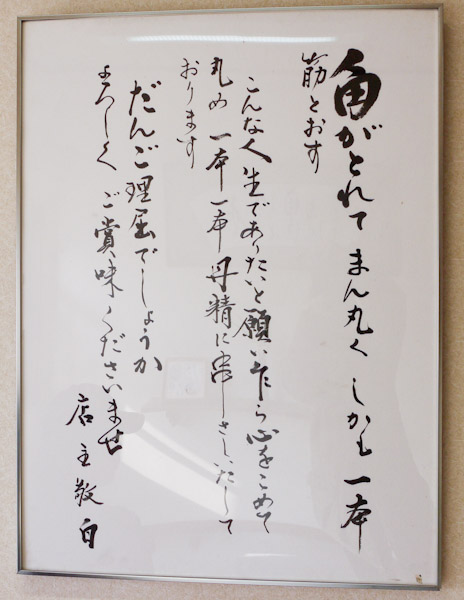 角がとれて まん丸く しかも 一本
筋とおす
こんな人生でありたいと願いながら心をこめて
丸め 一本一本 丹精に串しさしいたして
おります
だんご理屈でしょうか
よろしく ご賞味くださいませ
店主敬白